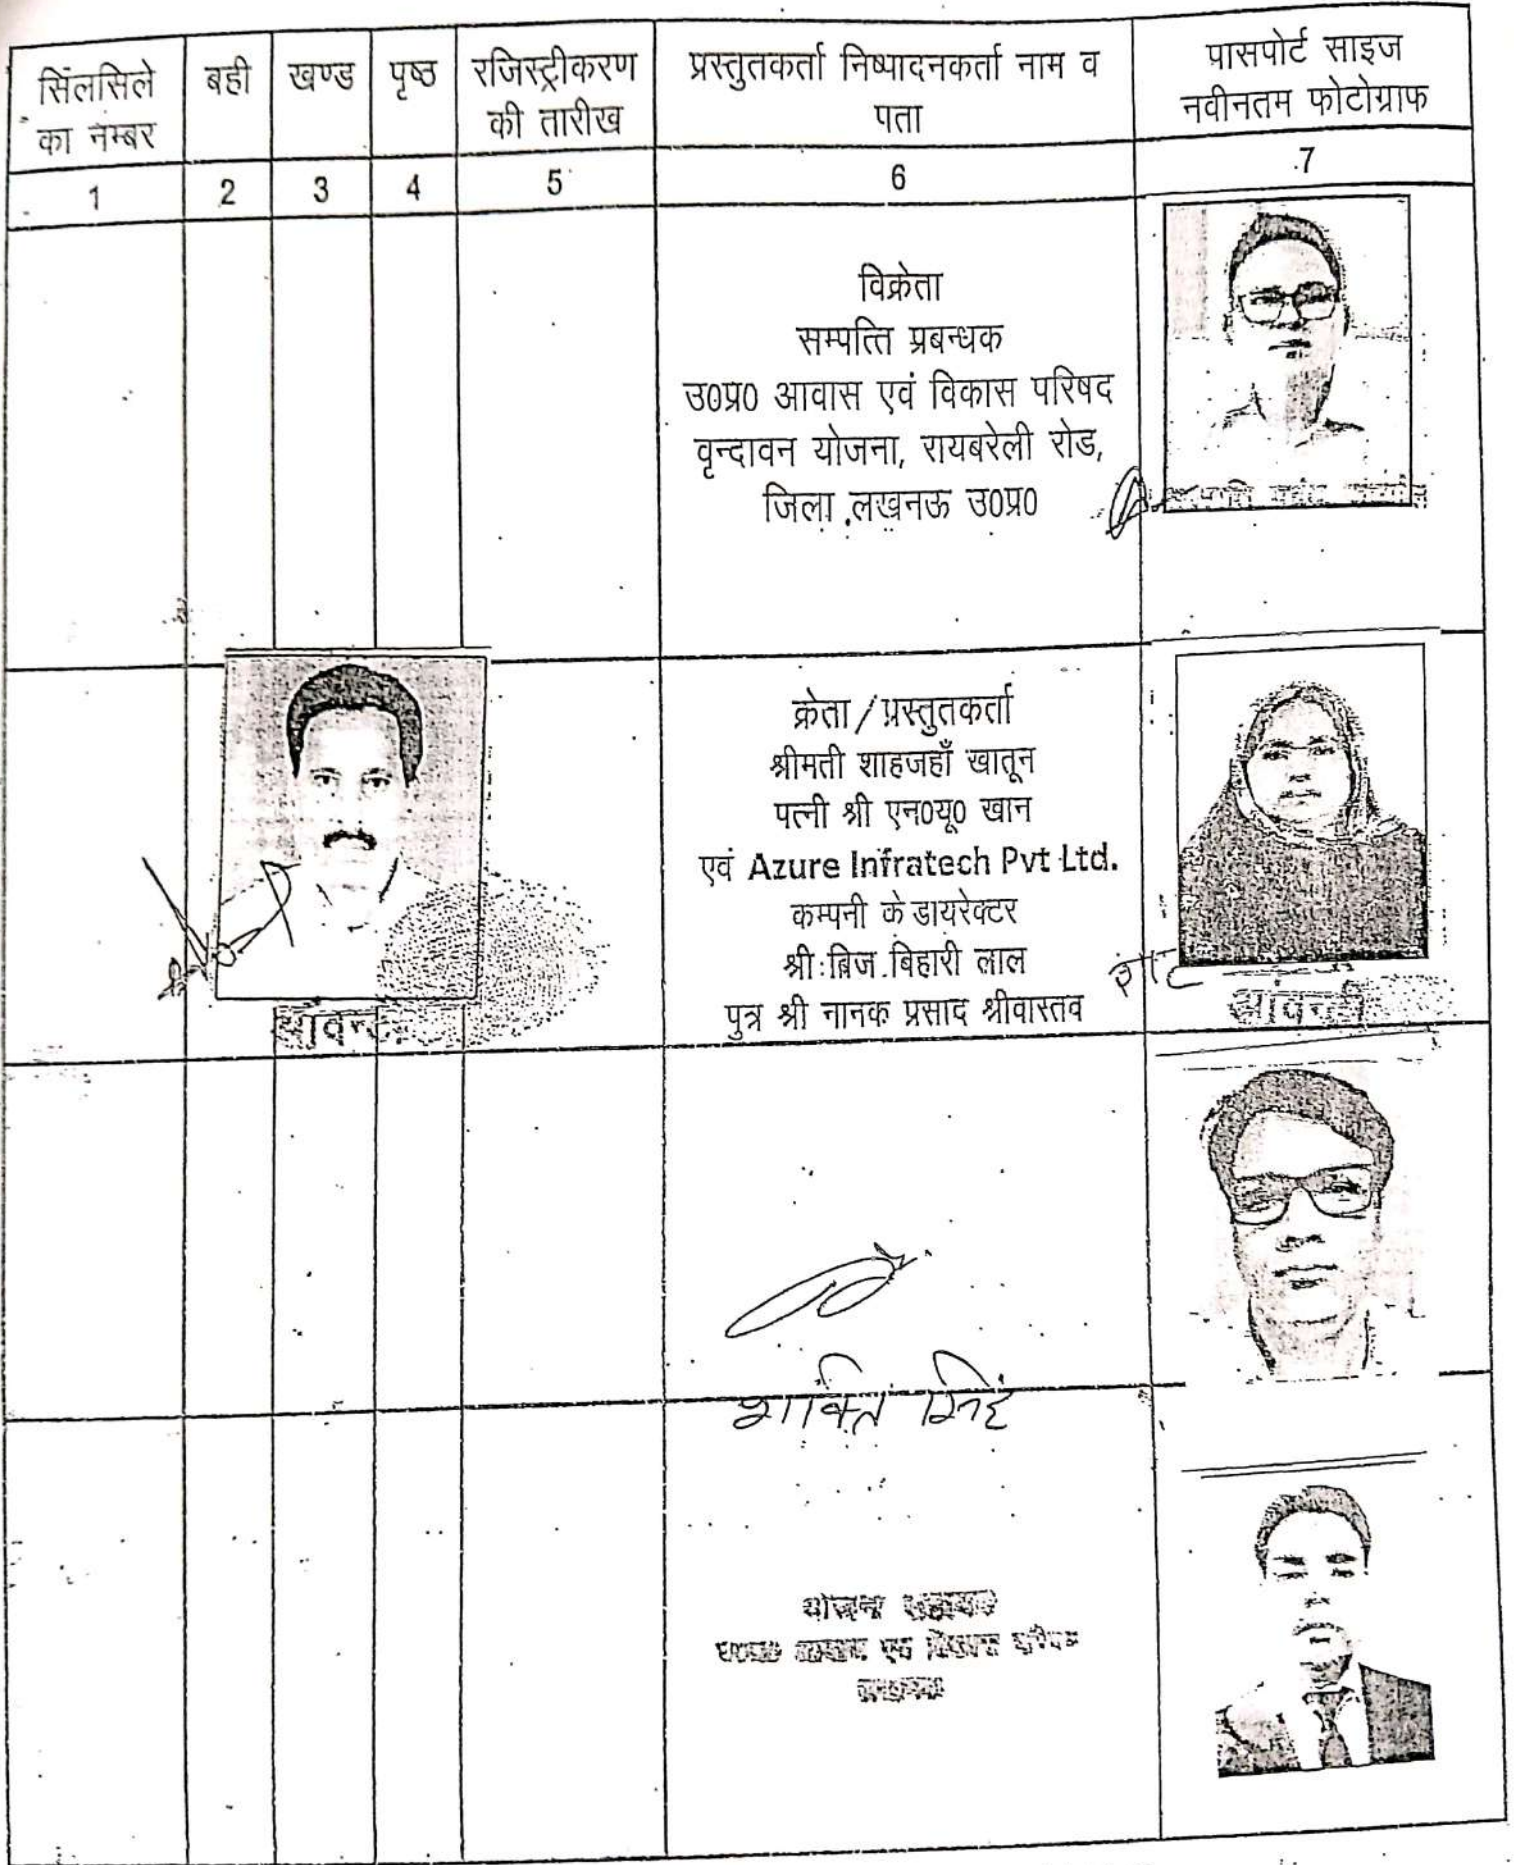 सिंलसिले
का नम्बर
बही
खण्ड
पृष्ठ
रजिस्ट्रीकरण
की तारीख
प्रस्तुतकर्ता निष्पादनकर्ता नाम व
पता
पासपोर्ट साइज
नवीनतम फोटोग्राफ
1
2
3
4
5
6
7
विक्रेता
सम्पत्ति प्रबन्धक
उ0प्र0 आवास एवं विकास परिषद
वृन्दावन योजना, रायबरेली रोड,
जिला लखनऊ उ0प्र0
क्रेता / प्रस्तुतकर्ता
श्रीमती शाहजहाँ खातून
पत्नी श्री एन0यू0 खान
एवं Azure Infratech Pvt Ltd.
कम्पनी के डायरेक्टर
श्री ब्रिज बिहारी लाल
पुत्र श्री नानक प्रसाद श्रीवास्तव
शक्ति सिंह
योजना सहायक